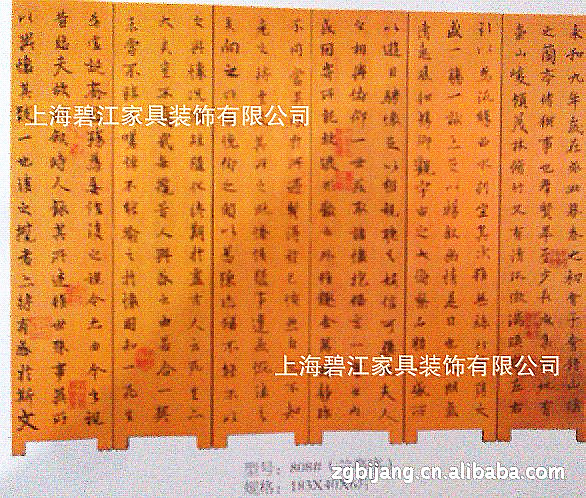 永和九年歲在癸丑暮春之初會于會稽山陰
之蘭亭脩稧事也群賢畢至少長咸集此地有
崇山峻領茂林脩竹又有清流激湍暎帶左右
引以為流觴曲水列坐其次雖無絲竹管弦之
盛一觴一詠亦足以暢敘幽情是日也天朗氣
清惠風和暢仰觀宇宙之大俯察品類之盛所
以遊目騁懷足以極視聽之娛信可樂也夫人
之相與俯仰一世或取諸懷抱悟言一室之內
或因寄所託放浪形骸之外雖趣舍萬殊靜躁
不同當其欣於所遇暫得於己快然自足不知
老之將至及其所之既惓情隨事遷感慨係之
矣向之所欣俛仰之間以為陳迹猶不能不以
之興懷況脩短隨化終期於盡古人云死生亦
大矣豈不痛哉每攬昔人興感之由若合一契
未嘗不臨文嗟悼不能喻之於懷固知一死生
為虛誕齊彭殤為妄作後之視今亦由今之視
昔悲夫故列敘時人錄其所述雖世殊事異所
以興懷其致一也後之攬者亦將有感於斯文
上海碧江家具装饰有限公司
上海碧江家具装饰有限公司
型号：808#
zgbijang.cn.alibaba.com
规格：183X40X6片